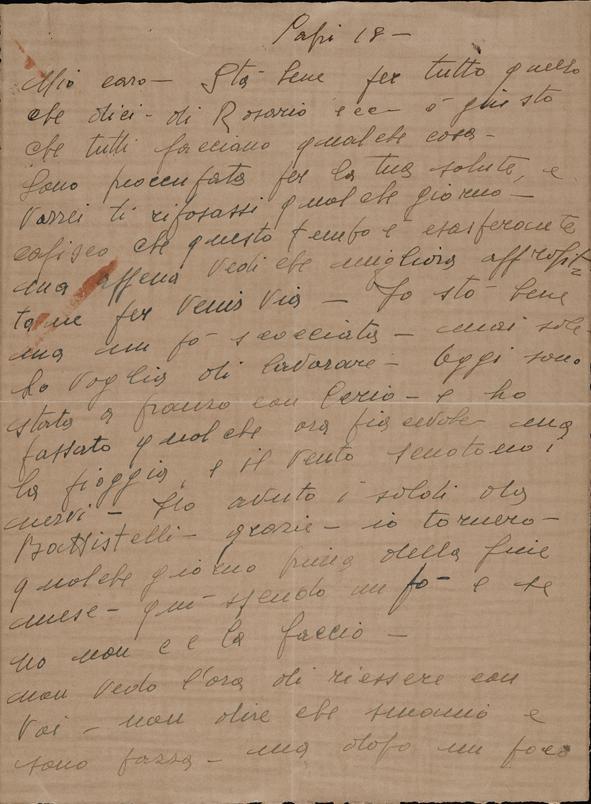 Capri 18 –
Mio caro – Stà bene per tutto quello
che dici – di Rosario ecc – è giusto
che tutti facciano qualche cosa –
Sono preoccupata per la tua salute, e
vorrei ti riposassi qualche giorno –
capisco che questo tempo è esasperante
ma appena vedi che migliora approfit=
tane per venir via – Io stò bene
ma un pò scocciata – mai
ho voglia di lavorare – Oggi sono
stata a pranzo con – e ho
passato qualche ora piacevole ma
la pioggia, e il vento scuotono i
nervi – Ho avuto i soldi da
Battistelli – grazie – io tornerò –
qualche giorno prima della fine
mese – quì spendo un pò – e se
no non ce la faccio –
non vedo l'ora di riessere con
voi – non dire che smanio e
sono pazza – ma dopo un poco